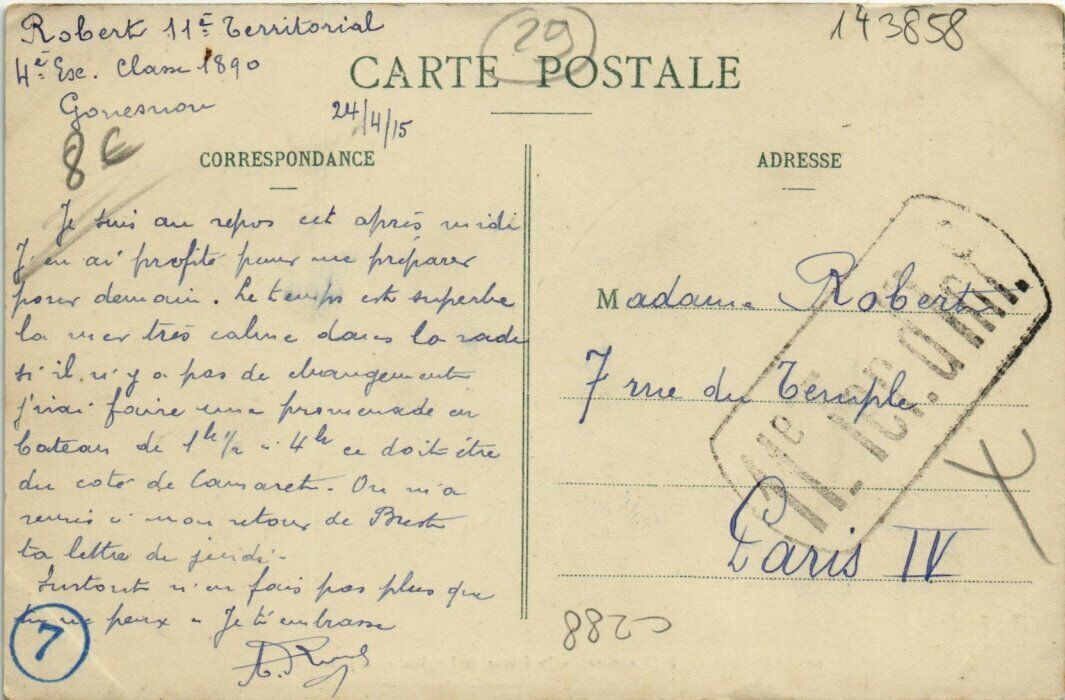 Robert 11e Territorial
4e Esc. Classe 1890
Gouesnou
24/4/15
29
143858
8€
CARTE POSTALE
CORRESPONDANCE
Je suis au repos cet après midi
J'en ai profité pour me préparer
pour demain. Le temps est superbe
la mer très calme dans la rade
si il n'y a pas de changement
j'irai faire une promenade en
bateau de 1h1/2 à 4h ce doit être
du coté de Camaret. On m'a
remis à mon retour de Brest
ta lettre de jeudi.
Surtout n'en fais pas plus que
tu ne peux. Je t'embrasse
7
ADRESSE
Madame Robert
7 rue du Temple
Paris IV
11e Ter. d'Inf.
8825